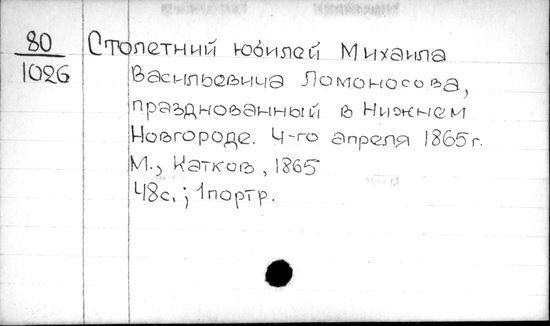 80
1026
Столетний юбилей Михаила
Васильевича Ломоносова,
празднованный в Нижнем
Новгороде. 4-го апреля 1865 г.
М., Катков, 1865
48с.; 1портр.